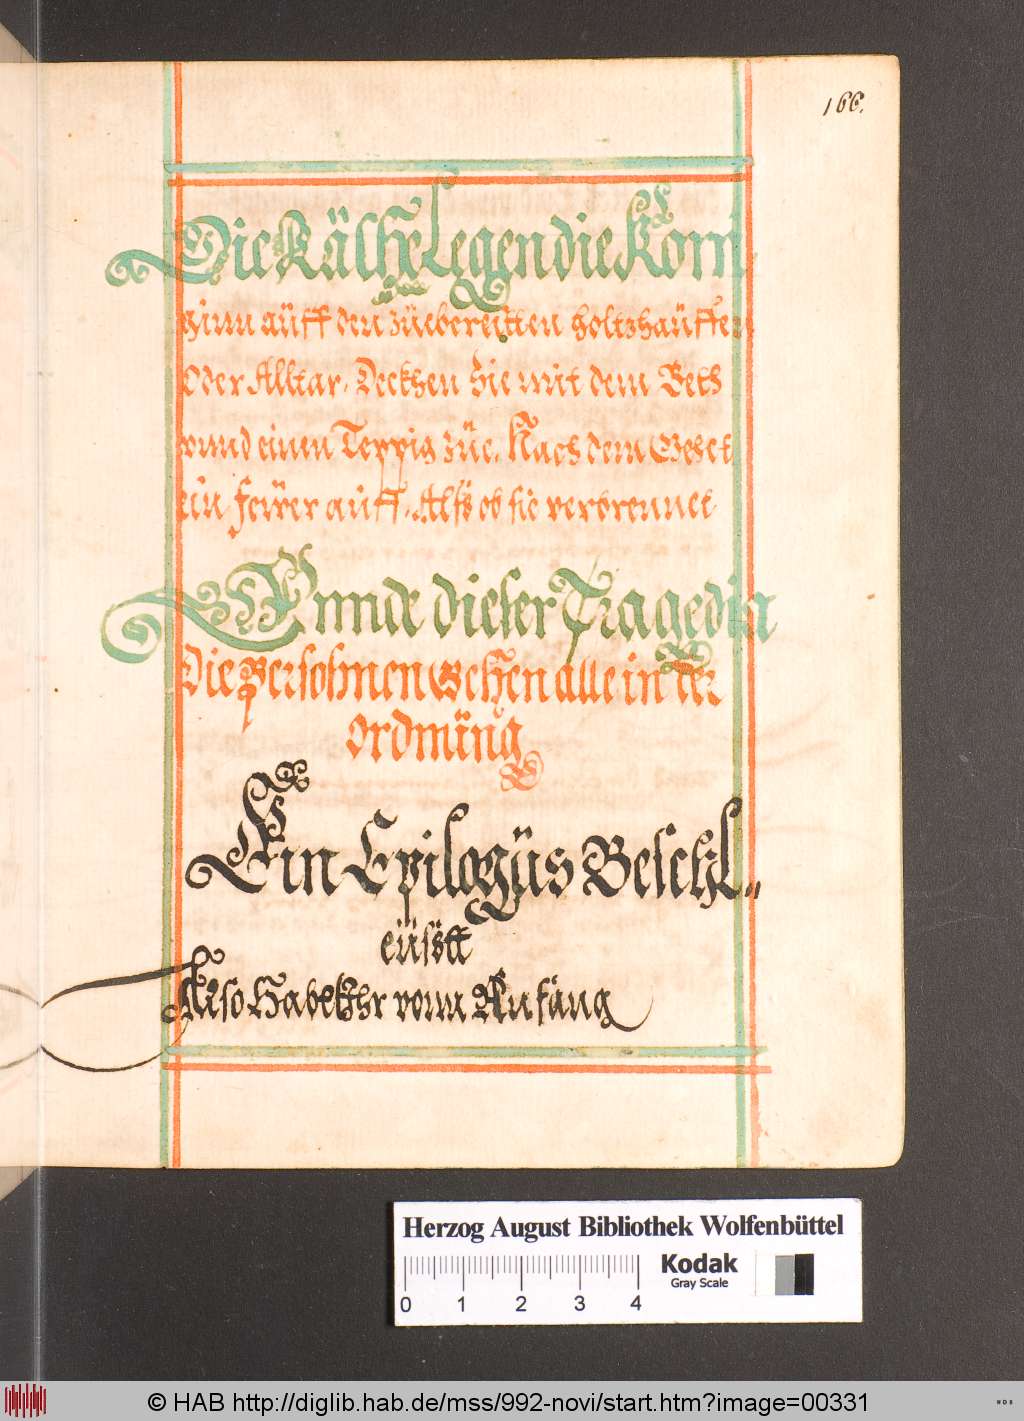 166.
Die Räthe Legen die Köni
ginn aüff den züebereitten holtzhaüffen
Oder Alltar, Deckhen Sie mit dem Beth
vnnd einen Teppig züe. Nach dem Gehet
ein fewer aüff, Alß ob sie verbrennet
Vnnde dieser Tragedia
Die Persohnen Gehen alle in der
ordnüng
Ein Epilogüs Beschl„
eüßtt
Also Habt Ihr vonn Anfang
Herzog August Bibliothek Wolfenbüttel
Kodak
Gray Scale
0 1 2 3 4
© HAB http://diglib.hab.de/mss/992-novi/start.htm?image=00331